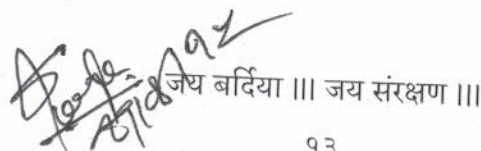 जय बर्दिया ||| जय संरक्षण |||
१३